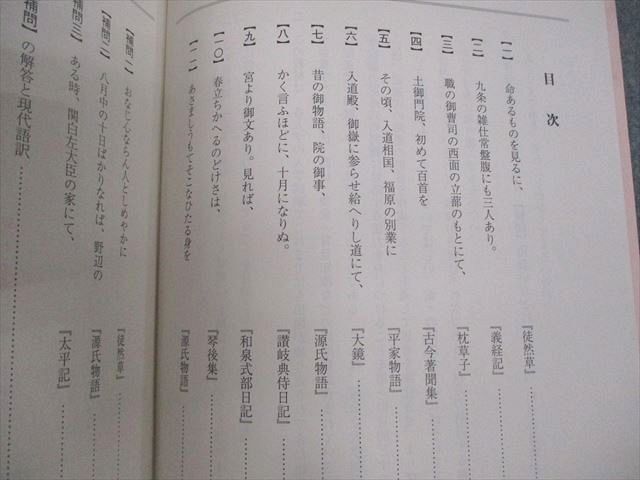 目次
【一】 命あるものを見るに、 『徒然草』
【二】 九条の雑仕常盤腹にも三人あり。 『義経記』
【三】 職の御曹司の西面の立蔀のもとにて、 『枕草子』
【四】 土御門院、初めて百首を 『古今著聞集』
【五】 その頃、入道相国、福原の別業に 『平家物語』
【六】 入道殿、御嶽に参らせ給へりし道にて、 『大鏡』
【七】 昔の御物語、院の御事、 『源氏物語』
【八】 かく言ふほどに、十月になりぬ。 『讃岐典侍日記』
【九】 宮より御文あり。見れば、 『和泉式部日記』
【一〇】 春立ちかへるのどけさは、 『琴後集』
【一一】 あさましうもてそこなひたる身を 『源氏物語』
【補問一】 おなじ心ならん人としめやかに 『徒然草』
【補問二】 八月中の十日ばかりなれば、野辺の 『源氏物語』
【補問三】 ある時、関白左大臣の家にて、 『太平記』
【補問】の解答と現代語訳